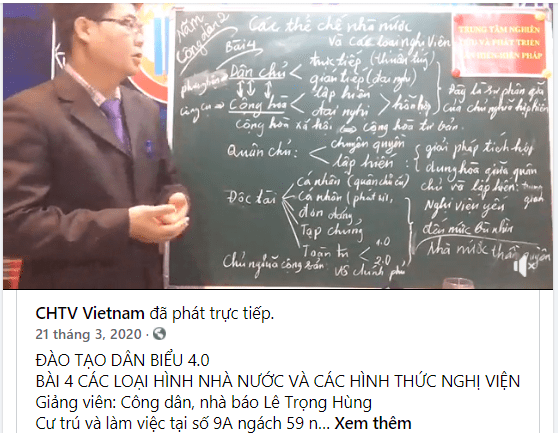 Năm
Công dân 2
Các thể chế nhà nước
và các loại nghị viện
Bài 4
TRUNG TÂM NGHIÊN
CỨU VÀ PHÁT TRIỂN
HIẾN PHÁP
Dân chủ
trực tiếp (thuần túy)
gián tiếp (đại nghị)
Cộng hòa
lập hiến
đại nghị
hỗn hợp
Đây là sự phân quả
của chủ nghĩa hợp hiến
Cộng hòa xã hội cộng hòa tư bản.
Quân chủ:
chuyên quyền
lập hiến:
giải pháp tích hợp
dung hòa giữa quân
chủ và lập hiến: trung
gian
Độc tài
Cá nhân (quân chủ cũ)
Cá nhân (phát xít),
đơn đảng
Tập chúng
Toàn trị
4.0
2.0
Nghị viện yếu
đến mức bù nhìn
Nhà nước thần quyền
Chủ nghĩa cộng sản: vs chính phủ
CHTV Vietnam đã phát trực tiếp.
21 tháng 3, 2020 ·
ĐÀO TẠO DÂN BIỂU 4.0
BÀI 4 CÁC LOẠI HÌNH NHÀ NƯỚC VÀ CÁC HÌNH THỨC NGHỊ VIỆN
Giảng viên: Công dân, nhà báo Lê Trọng Hùng
Cư trú và làm việc tại số 9A ngách 59 n... Xem thêm